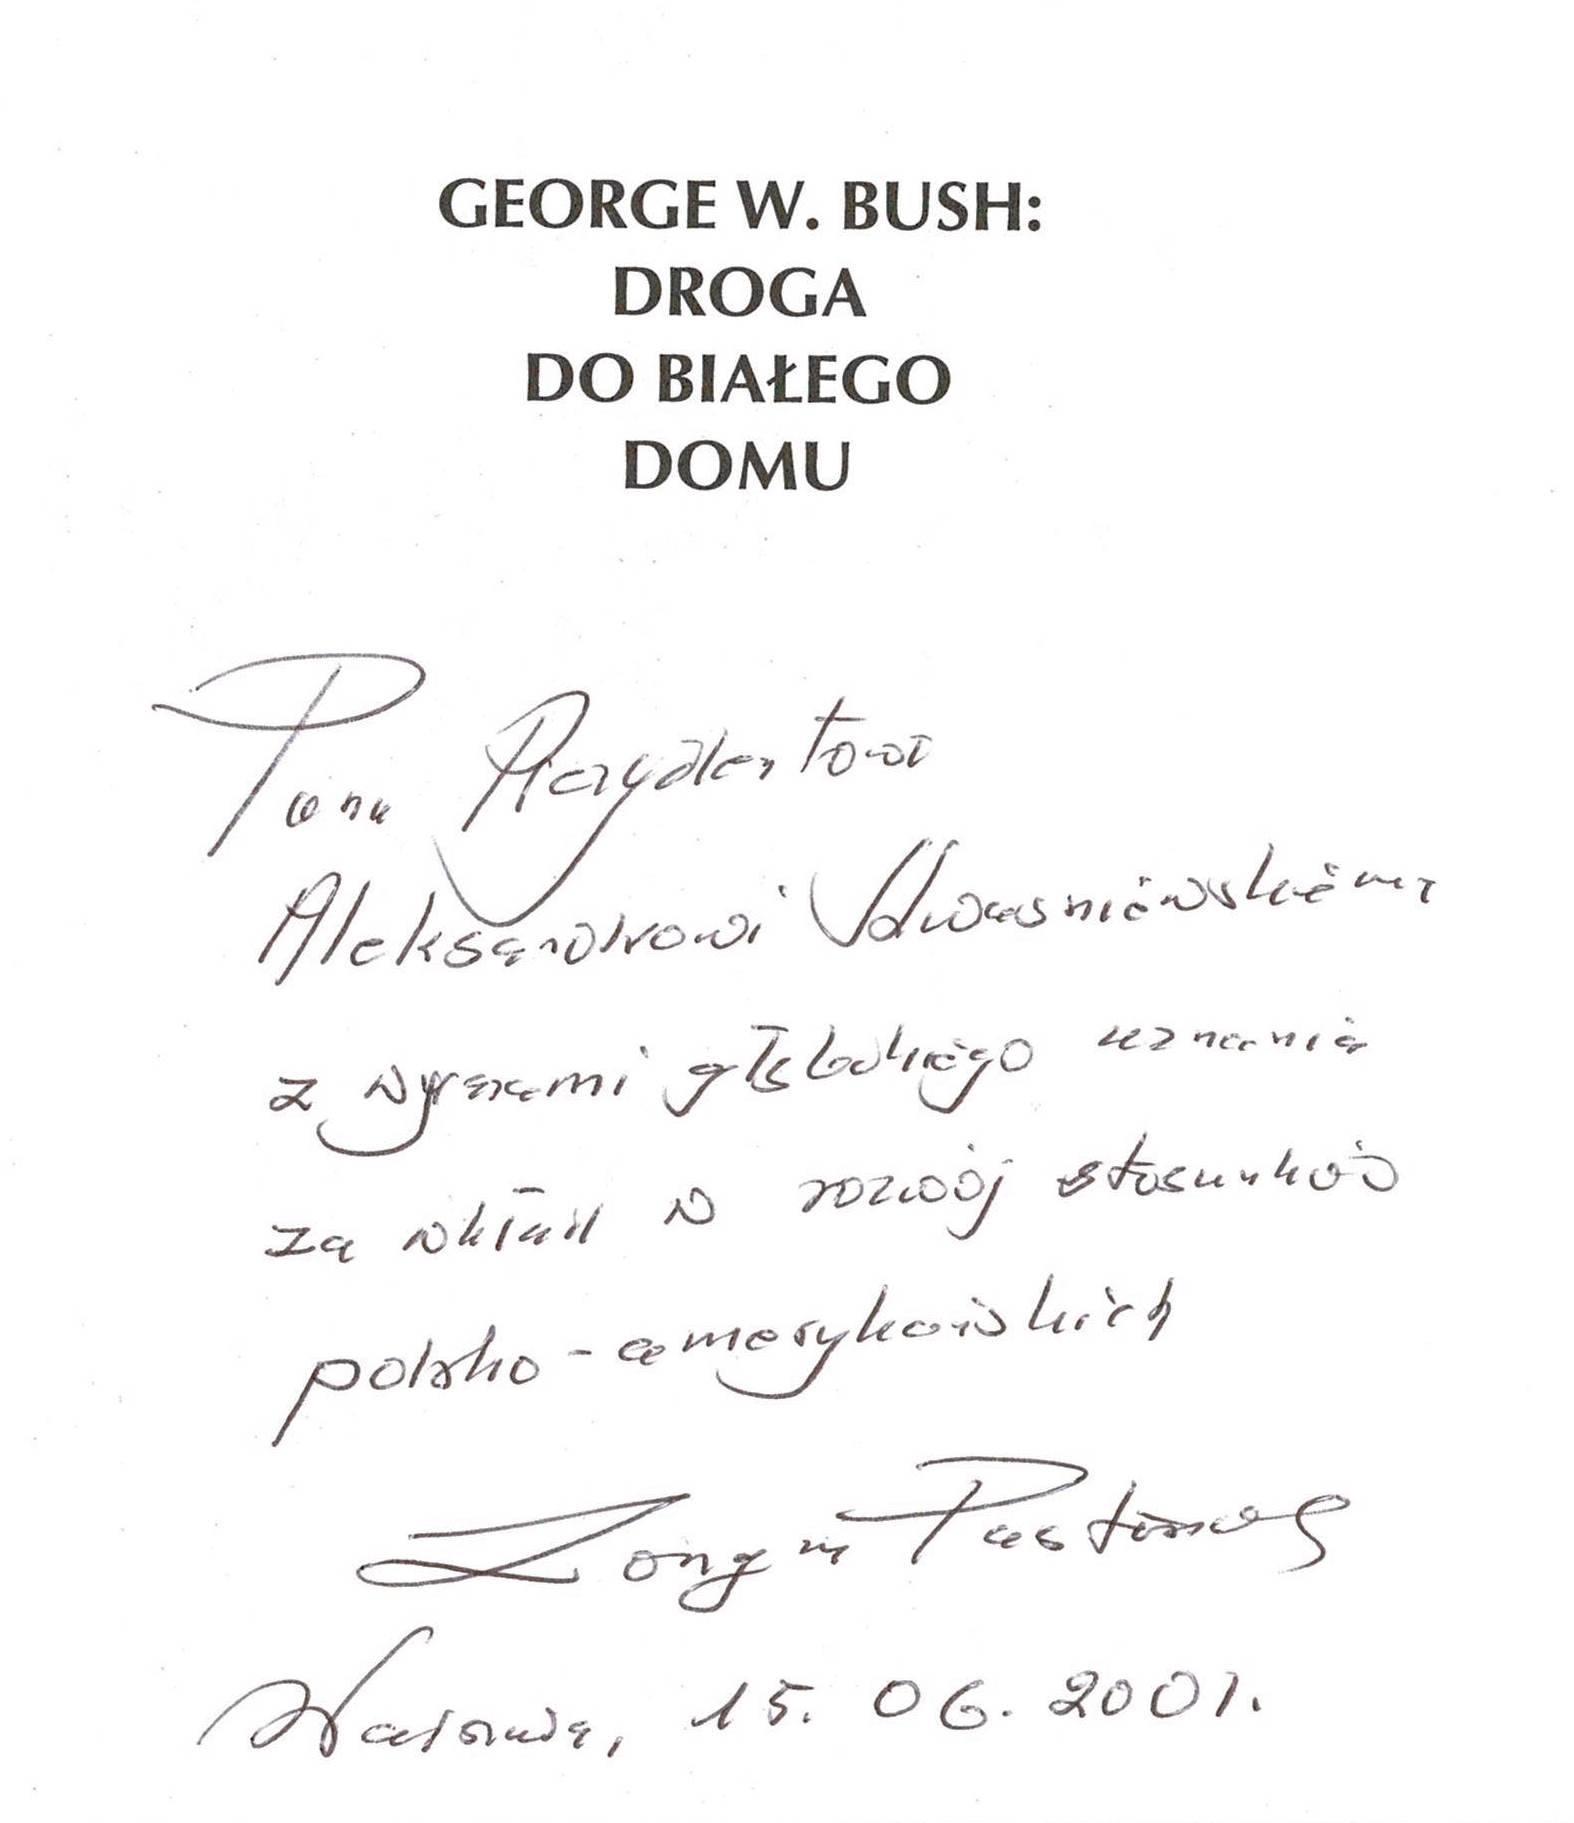 GEORGE W. BUSH:
DROGA
DO BIAŁEGO
DOMU
Panu Prezydentowi
Aleksandrowi Kwaśniewskiemu
z wyrazami głębokiego uznania
za wkład w rozwój stosunków
polsko-amerykańskich
Longin Pastusiak
Warszawa, 15. 06. 2001.